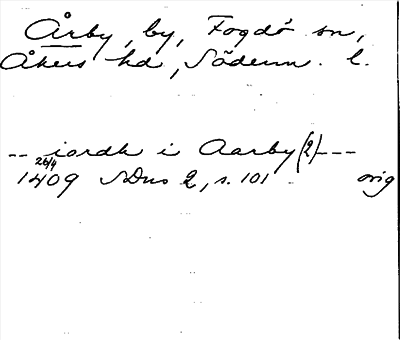 Årby, by, Fogdö sn,
Åkers hd, Söderm. l.
-- iordh i Aarby (2) ---
26/4
1409 SDns 2, s. 101 orig